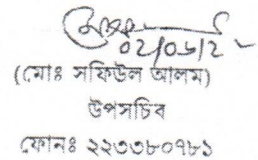 02/06/2
(মোঃ সফিউল আলম)
উপসচিব
ফোনঃ ২২৩৩৮০৭৮১